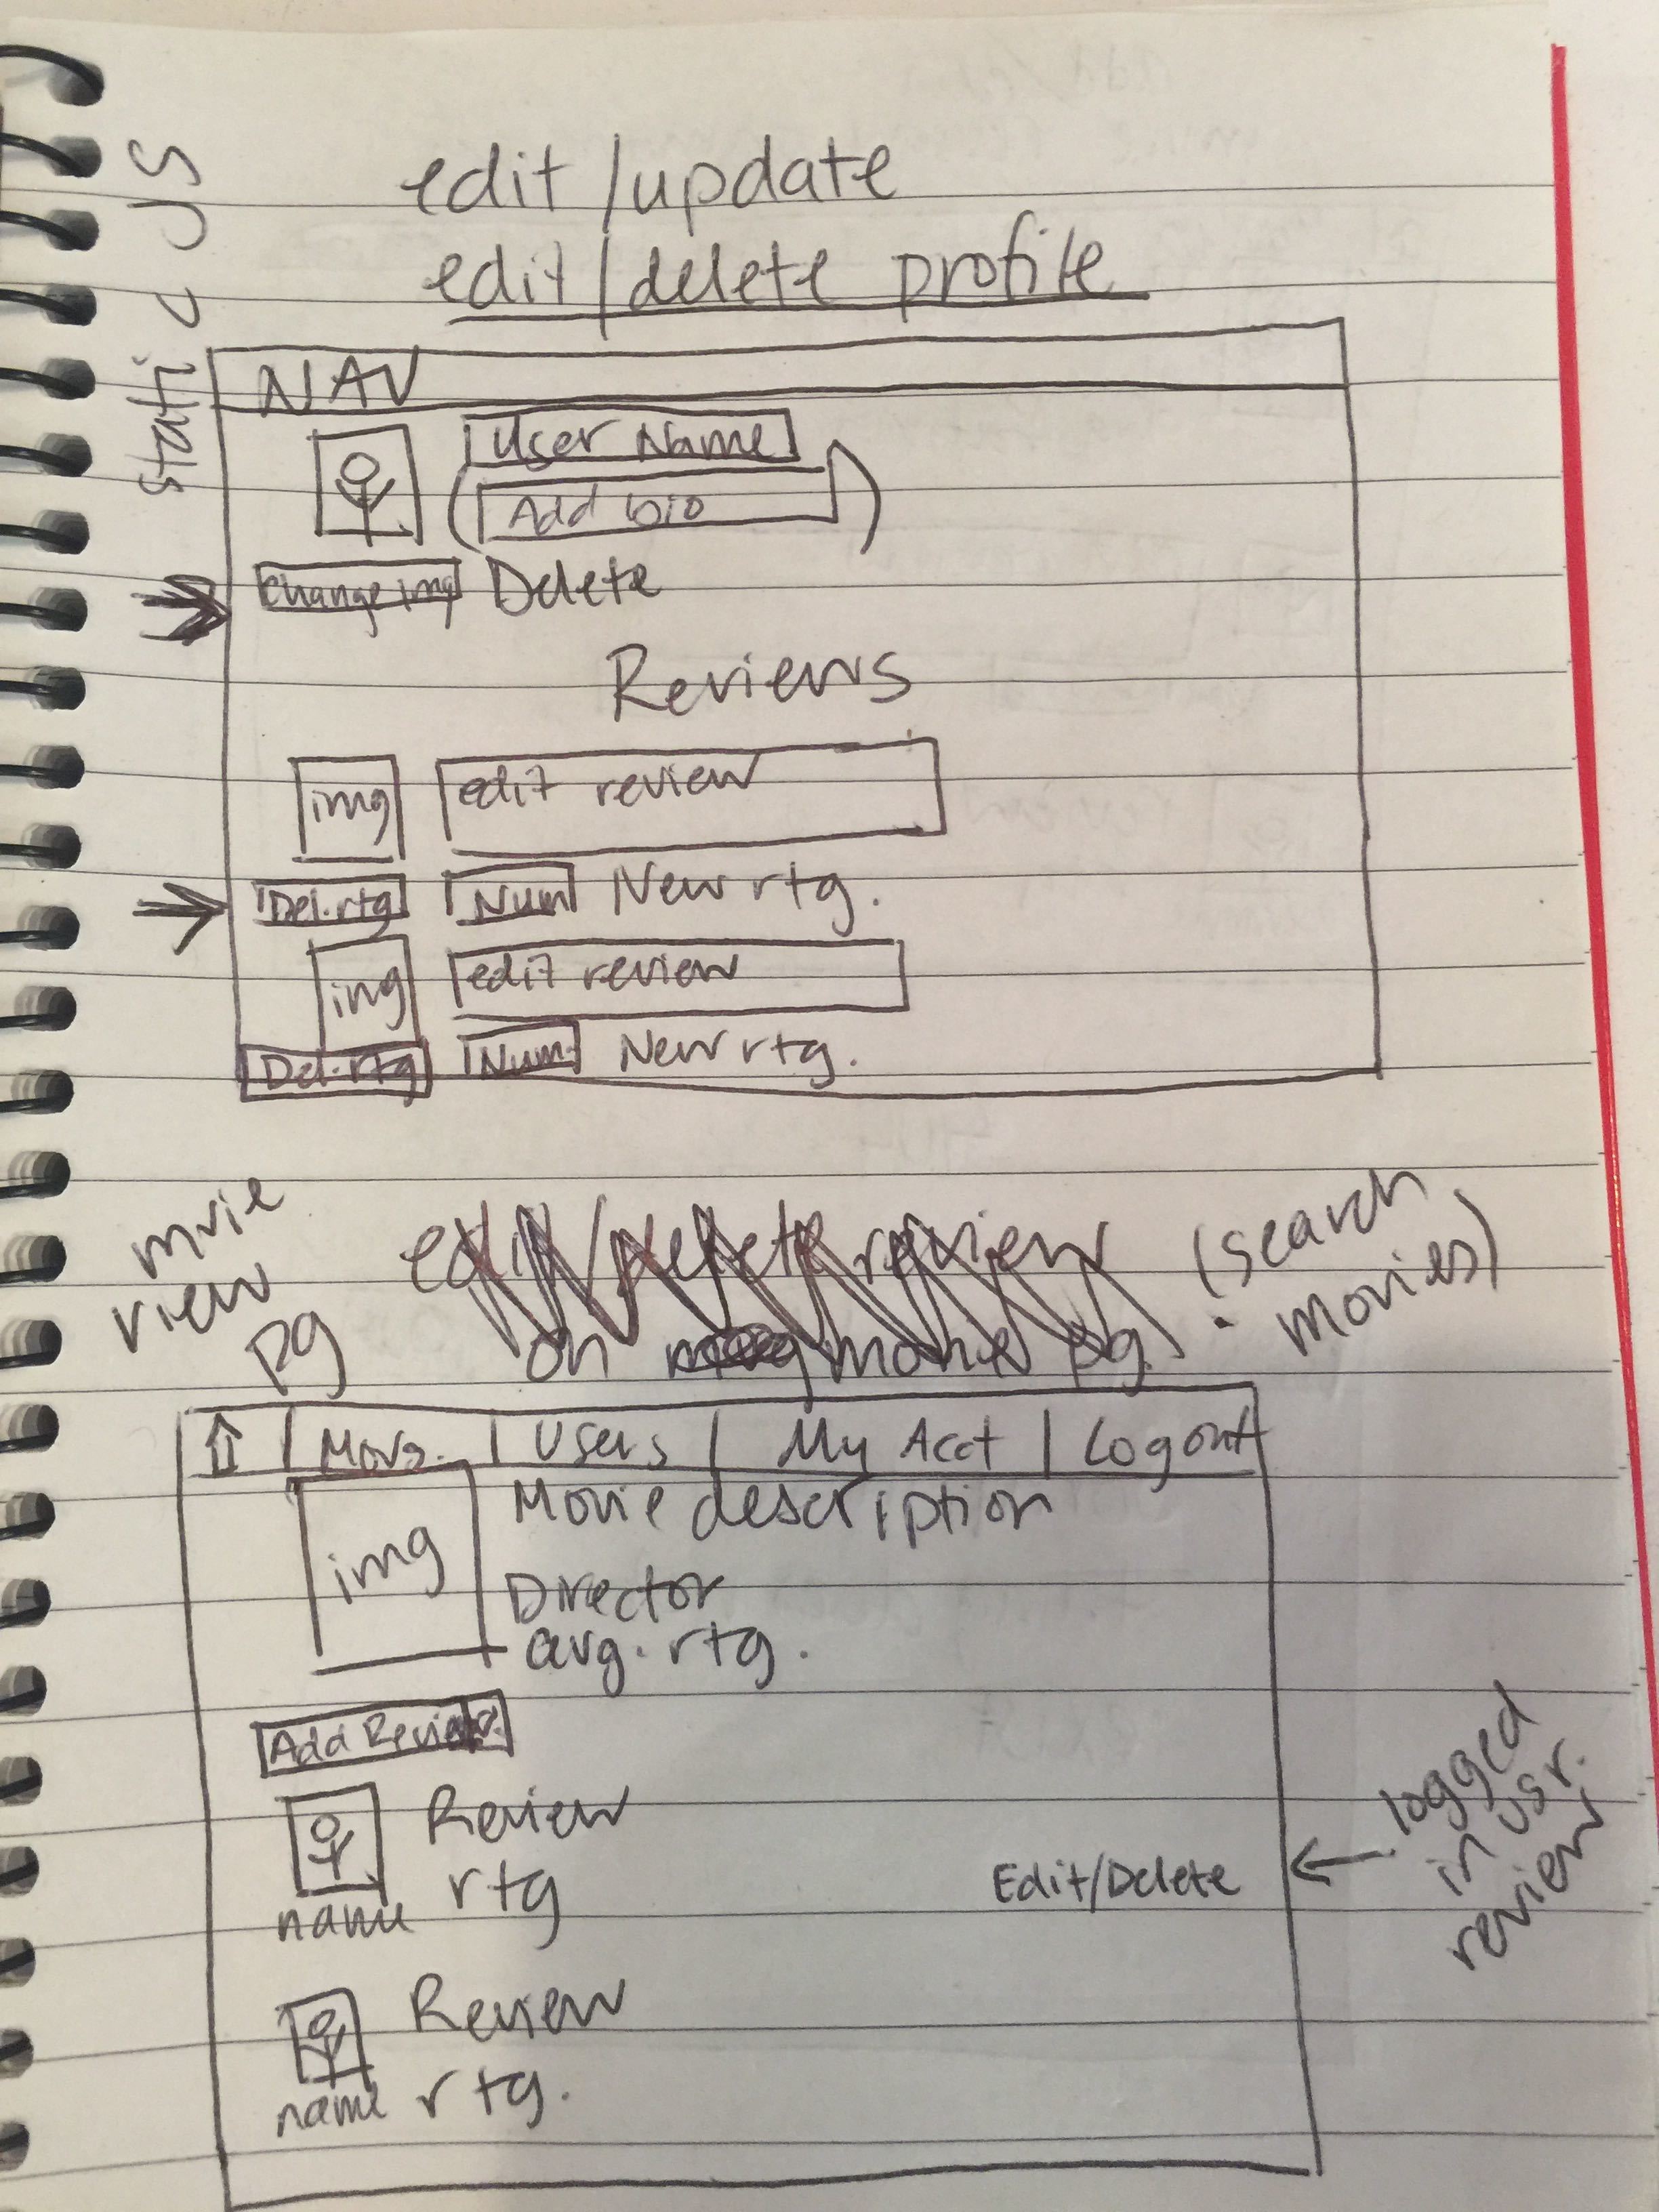 static JS
edit/update
edit/delete profile
NAV
User Name
Add bio
Change img Delete
Reviews
img edit review
Del.rtg Num New rtg.
img edit review
Del.rtg Num New rtg.
movie
view
pg
edit/delete review
on movie pg.
(search
movies)
Movs. | Users | My Acct | Logout
img
Movie description
Director
avg. rtg.
Add Review
Review
rtg
name
Edit/Delete
logged
in usr.
review
Review
name rtg.